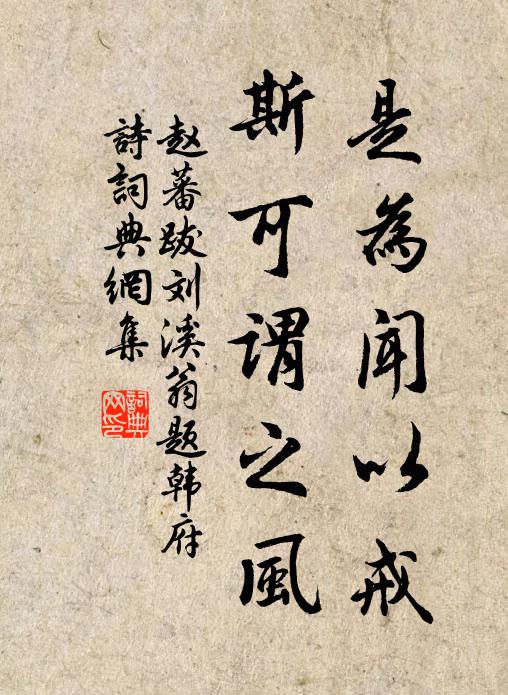 是為闻以戒
斯可謂之風
赵蕃跋刘溪翁题韩府
詩詞典網集
詞典
网印